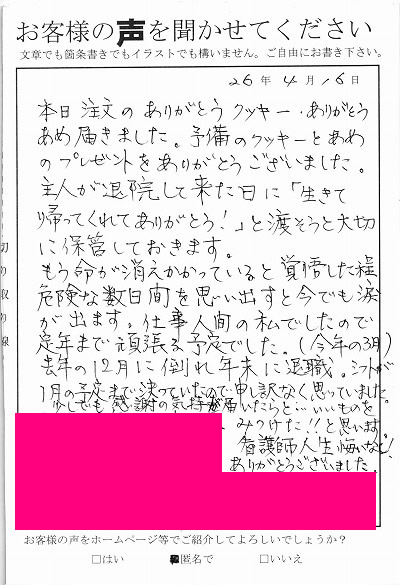 お客様の声を聞かせてください
文章でも箇条書きでもイラストでも構いません。ご自由にお書き下さい。
26年4月16日
本日注文のありがとうクッキー・ありがとう
あめ届きました。予備のクッキーとあめ
のプレゼントをありがとうございました。
主人が退院して来た日に「生きて
帰ってくれてありがとう！」と渡そうと大切
に保管しておきます。
もう命が消えかかっていると覚悟した程
危険な数日間を思い出すと今でも涙
が出ます。仕事人間の私でしたので
定年まで頑張る予定でした。(今年の3月)
去年の12月に倒れ年末に退職。シフトが
1月の予定まで決っていたので申し訳なく思っていました
少しでも感謝の気持が届いたらと…いいものを
みつけた!!と思います。
看護師人生悔いなし!
ありがとうございました。
切り取り線
お客様の声をホームページ等でご紹介してよろしいでしょうか？
□はい ■匿名で □いいえ